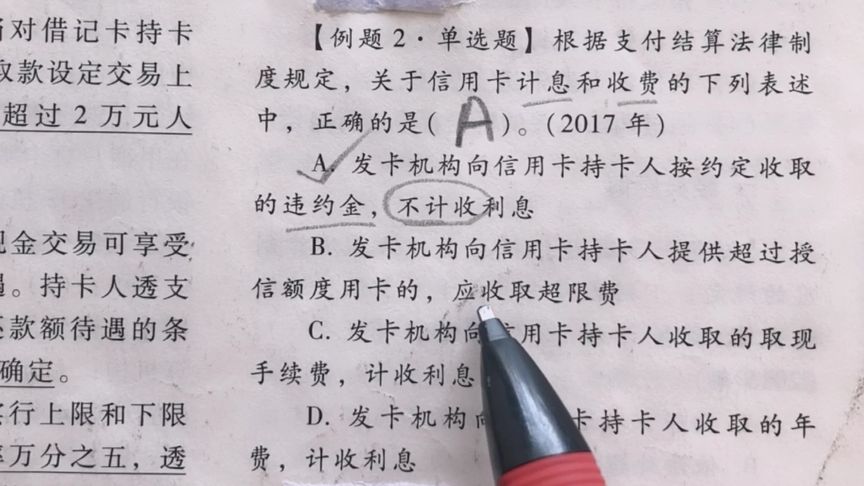 对借记卡持卡
取款设定交易上
超过2万元人
金交易可享受
。持卡人透支
款额待遇的条
确定。
行上限和下限
万分之五，透
【例题2·单选题】根据支付结算法律制
度规定，关于信用卡计息和收费的下列表述
中，正确的是(A)。(2017年)
A.发卡机构向信用卡持卡人按约定收取
的违约金，不计收利息
B.发卡机构向信用卡持卡人提供超过授
信额度用卡的，应收取超限费
C.发卡机构向信用卡持卡人收取的取现
手续费，计收利息
D.发卡机构向卡持卡人收取的年
费，计收利息